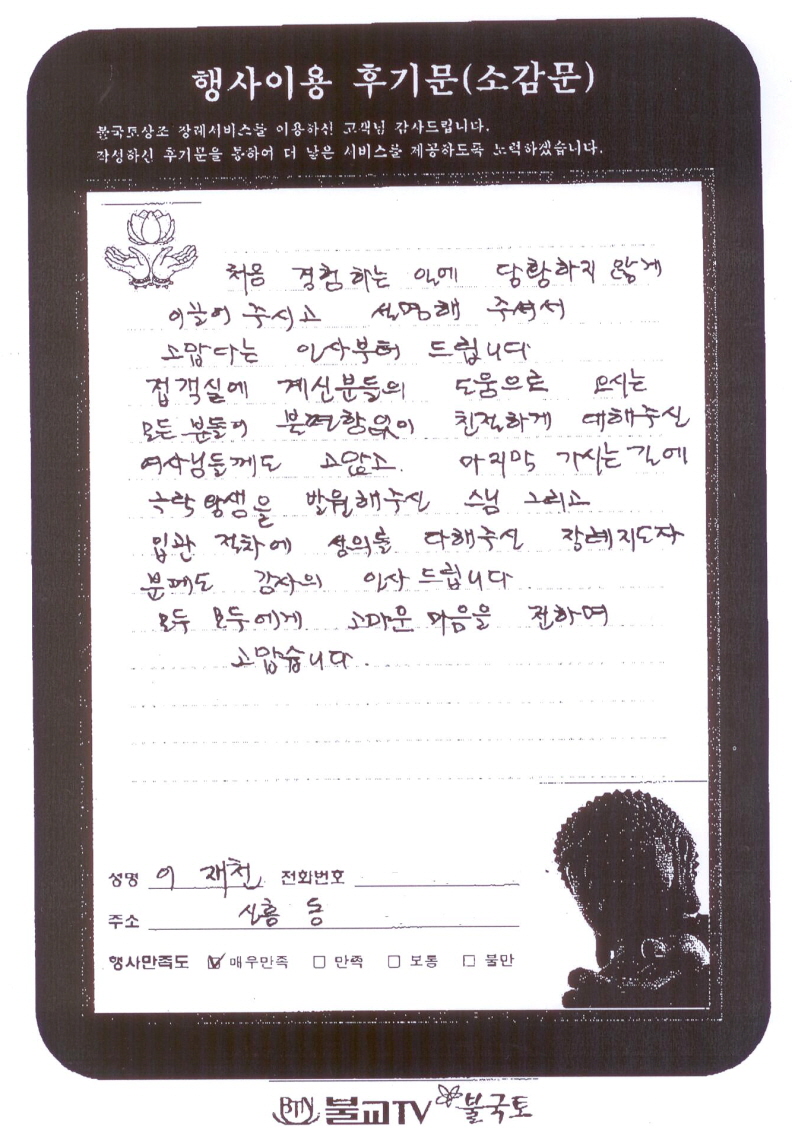 행사이용 후기문(소감문)
불국토상조 장례서비스를 이용하신 고객님 감사드립니다.
작성하신 후기문을 통하여 더 낳은 시비스를 제공하도록 노력하겠습니다.
처음 경험하는 일에 당황하지 않게
이끌어 주시고 설명해 주셔서
고맙다는 인사부터 드립니다
접객실에 계신분들의 도움으로 오시는
모든 분들이 불편함없이 친절하게 대해주신
여사님들께도 고맙고. 마지막 가시는 길에
극락왕생을 발원해주신 스님 그리고
입관 절차에 성의를 다해주신 장례지도자
분께도 감사의 인사 드립니다
모두 모두에게 고마운 마음을 전하며
고맙습니다.
성명 이 재천 전화번호
주소 신흥 동
행사만족도 ☑ 매우만족 □ 만족 □ 보통 □ 불만
BTN 불교TV 불국토